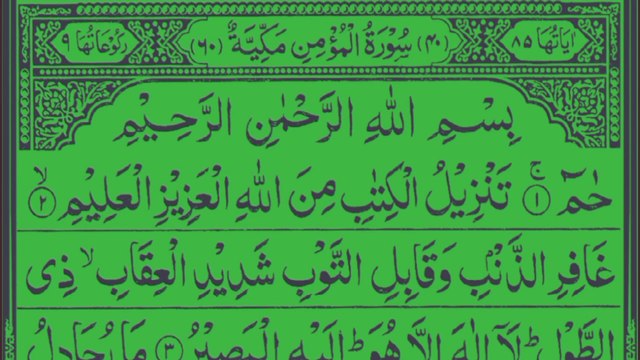 اٰیَاتُهَا ٨٥ (٤٠) سُوْرَةُ الْمُؤْمِنِ مَكِّيَّةٌ (٦٠) رُكُوْعَاتُهَا ٩
بِسْمِ اللهِ الرَّحْمٰنِ الرَّحِيْمِ
حٰمٓ ۚ ١ تَنْزِيْلُ الْكِتٰبِ مِنَ اللهِ الْعَزِيْزِ الْعَلِيْمِ ۙ ٢
غَافِرِ الذَّنْۢبِ وَقَابِلِ التَّوْبِ شَدِيْدِ الْعِقَابِ ۙ ذِى
الطَّوْلِ ؕ لَاۤ اِلٰهَ اِلَّا هُوَ ؕ اِلَيْهِ الْمَصِيْرُ ٣ مَا يُجَادِلُ